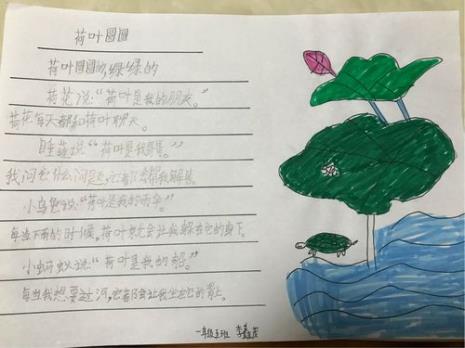 荷叶圆圆
荷叶圆圆的,绿绿的
荷花说:“荷叶是我的朋友。”
荷花每天都和荷叶聊天。
睡莲说:“荷叶是我
我问它什么问题,它都会帮我解答。
小乌龟说:“荷叶是我的雨伞。”
每当下雨的时候,荷叶就会让我躲在它的身下。
小蚂蚁说:“荷叶是我的船。”
每当我想要过河,它都会让我坐在它的背上。
一年级五班 李